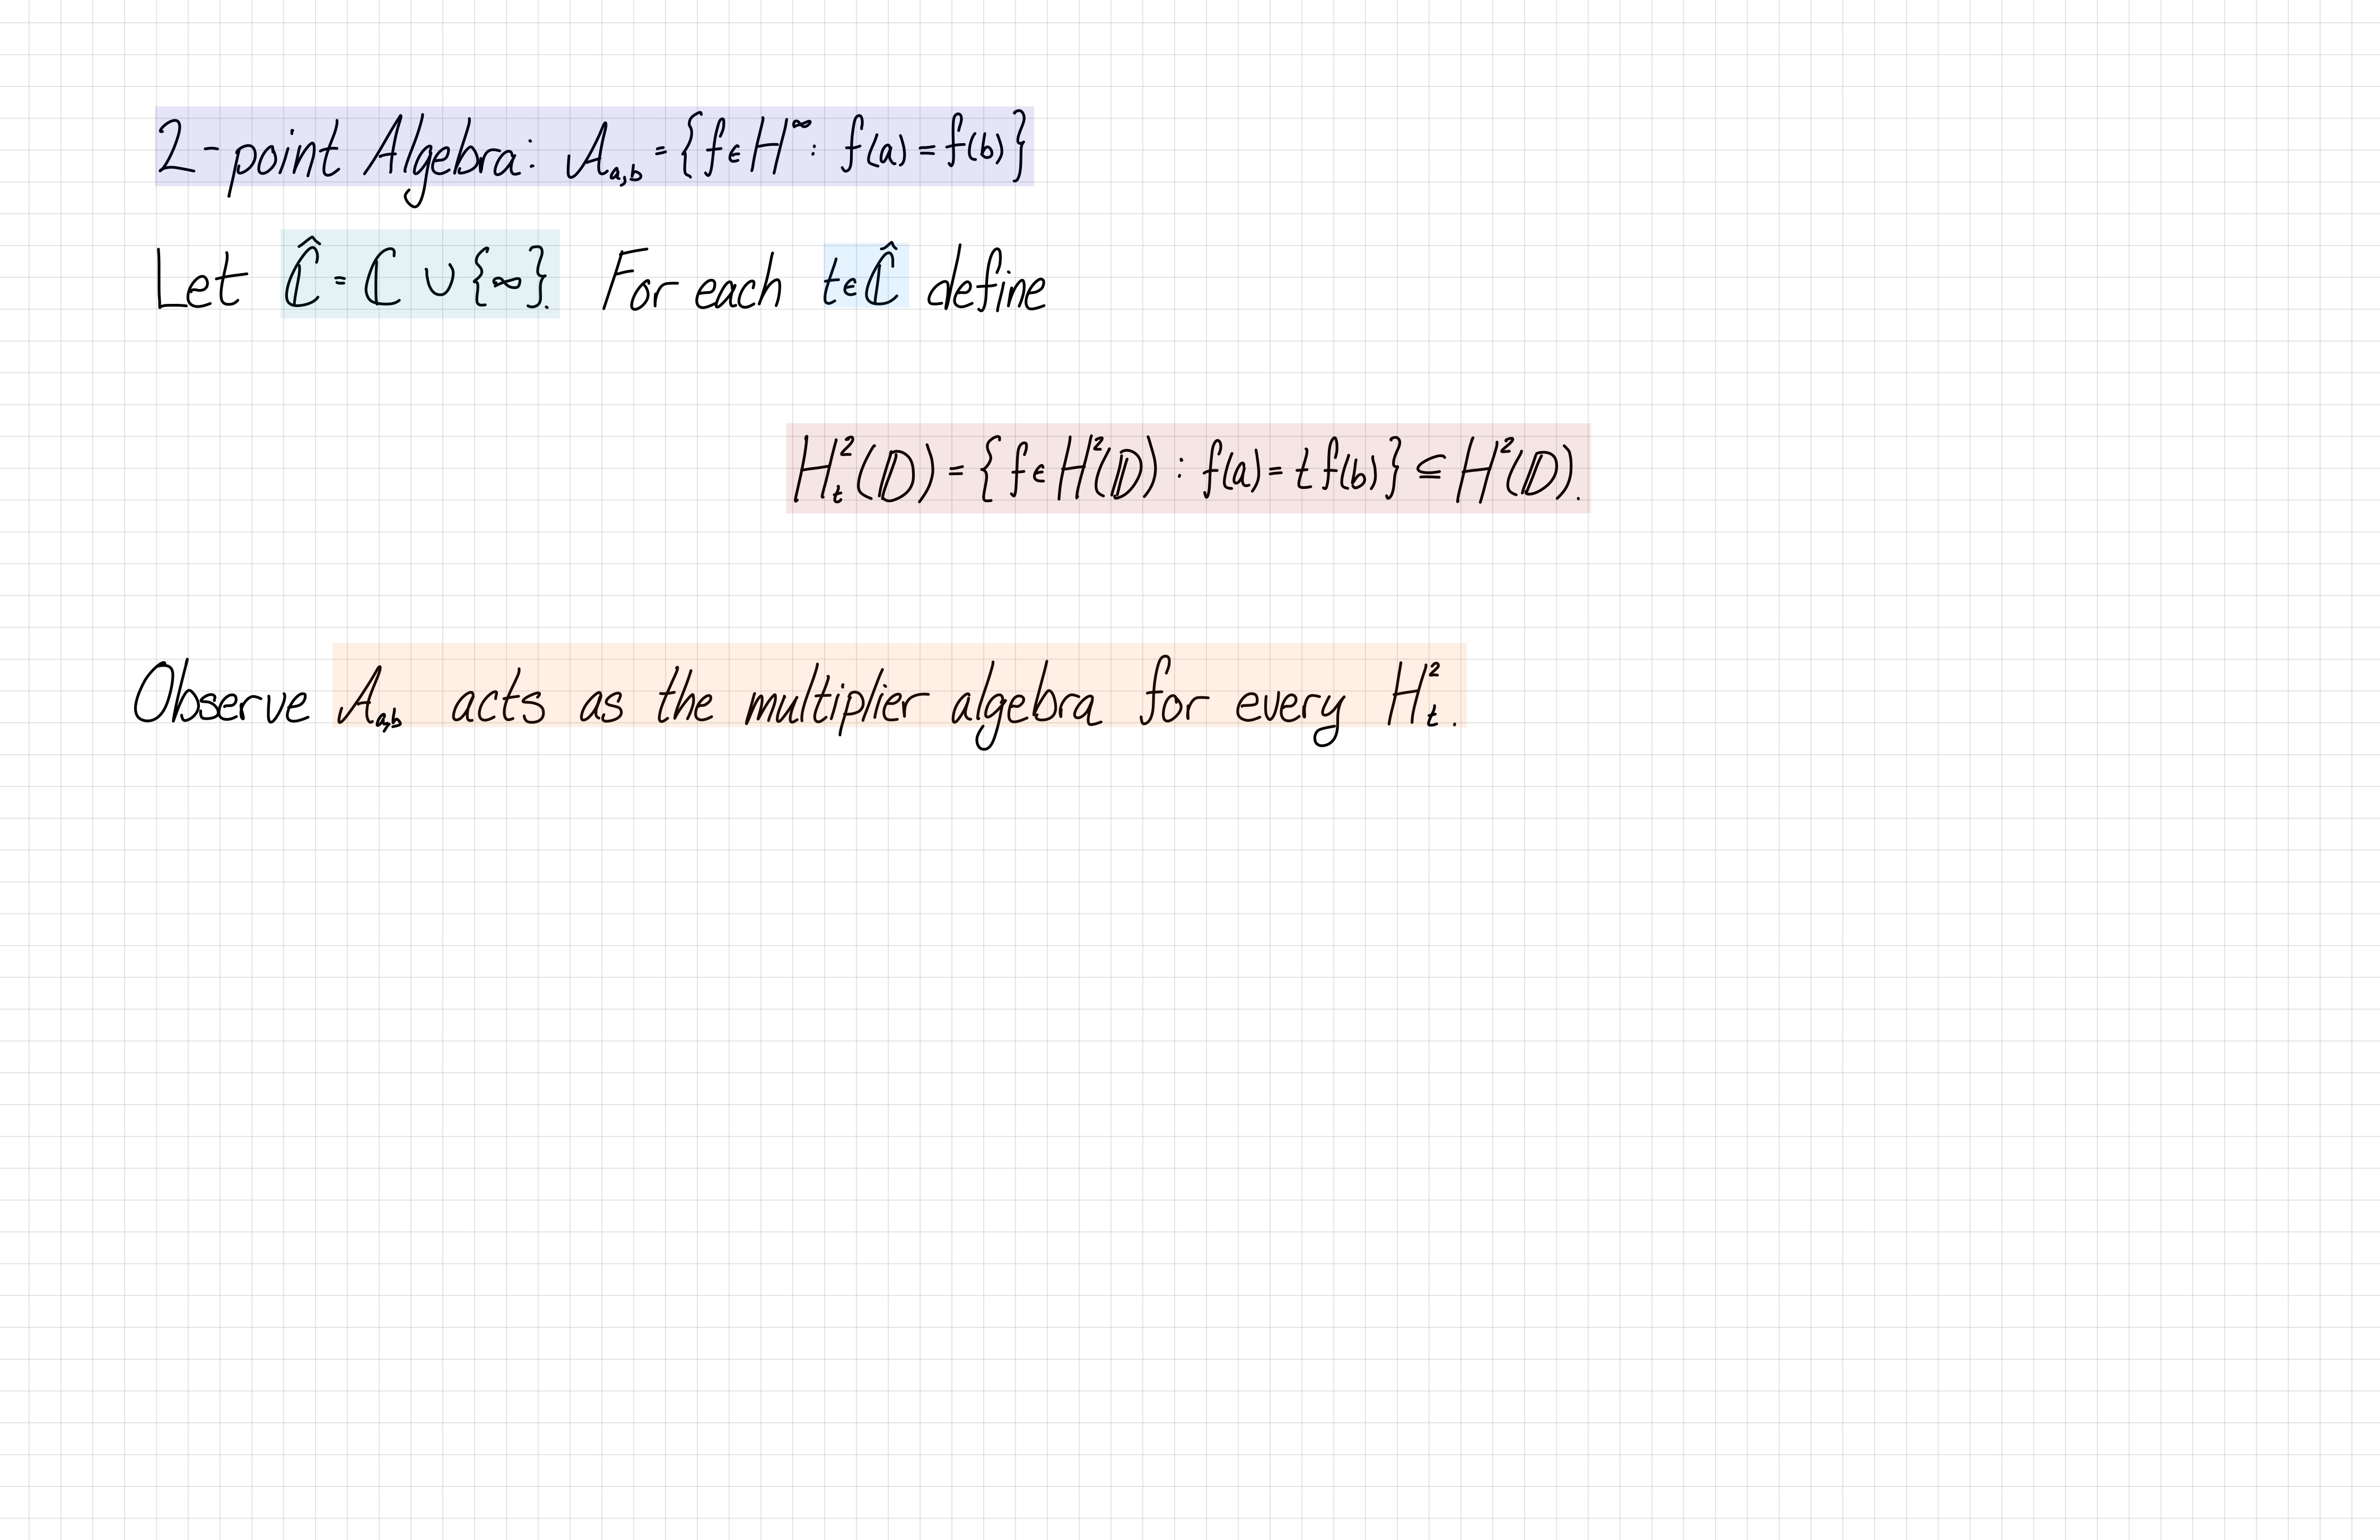 2-point Algebra: A_{a,b} = {f ∈ H^∞ : f(a) = f(b)}
Let Ĉ = ℂ ∪ {∞}. For each t ∈ Ĉ define
H²_t(𝔻) = {f ∈ H²(𝔻) : f(a) = t f(b)} ⊆ H²(𝔻).
Observe A_{a,b} acts as the multiplier algebra for every H²_t.